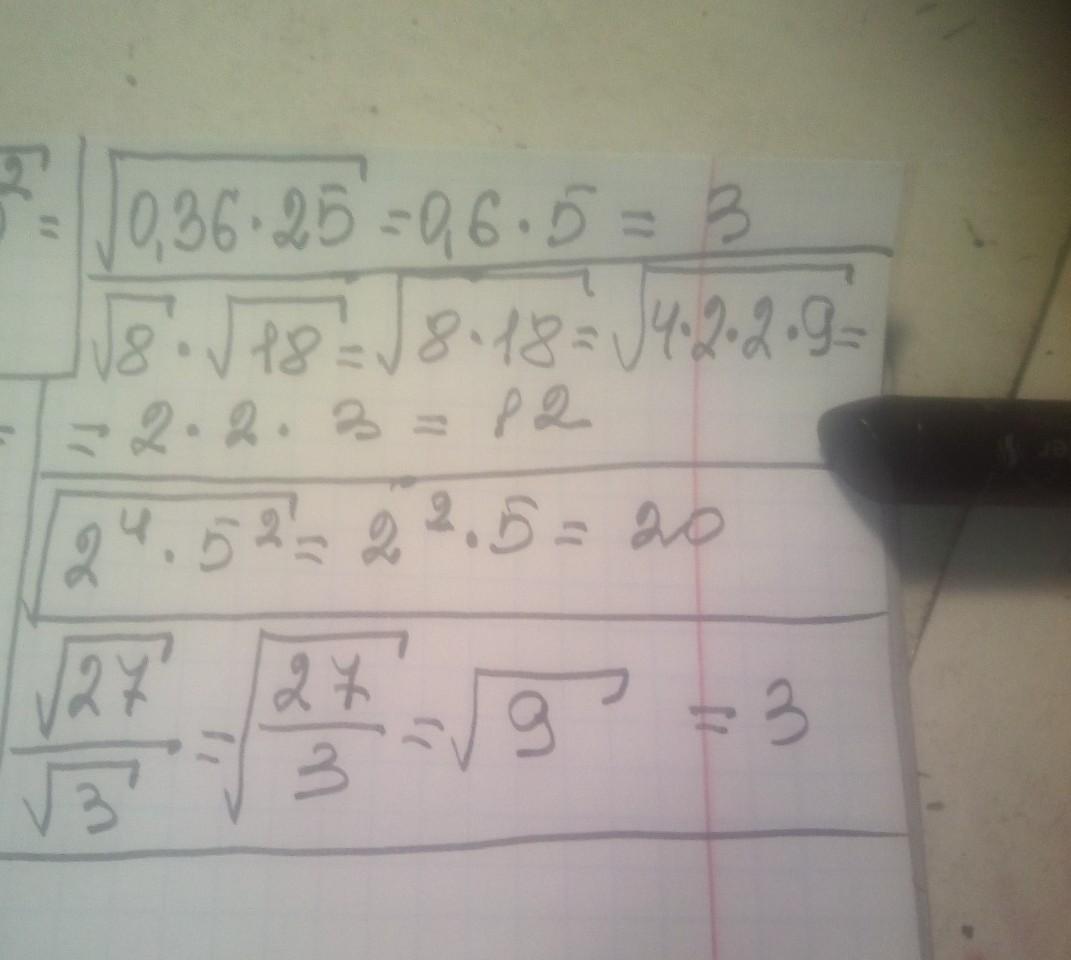 √0,36·25 = 0,6·5 = 3
√8·√18 = √8·18 = √4·2·2·9 =
= 2·2·3 = 12
√2⁴·5² = 2²·5 = 20
√27/√3 = √27/3 = √9 = 3